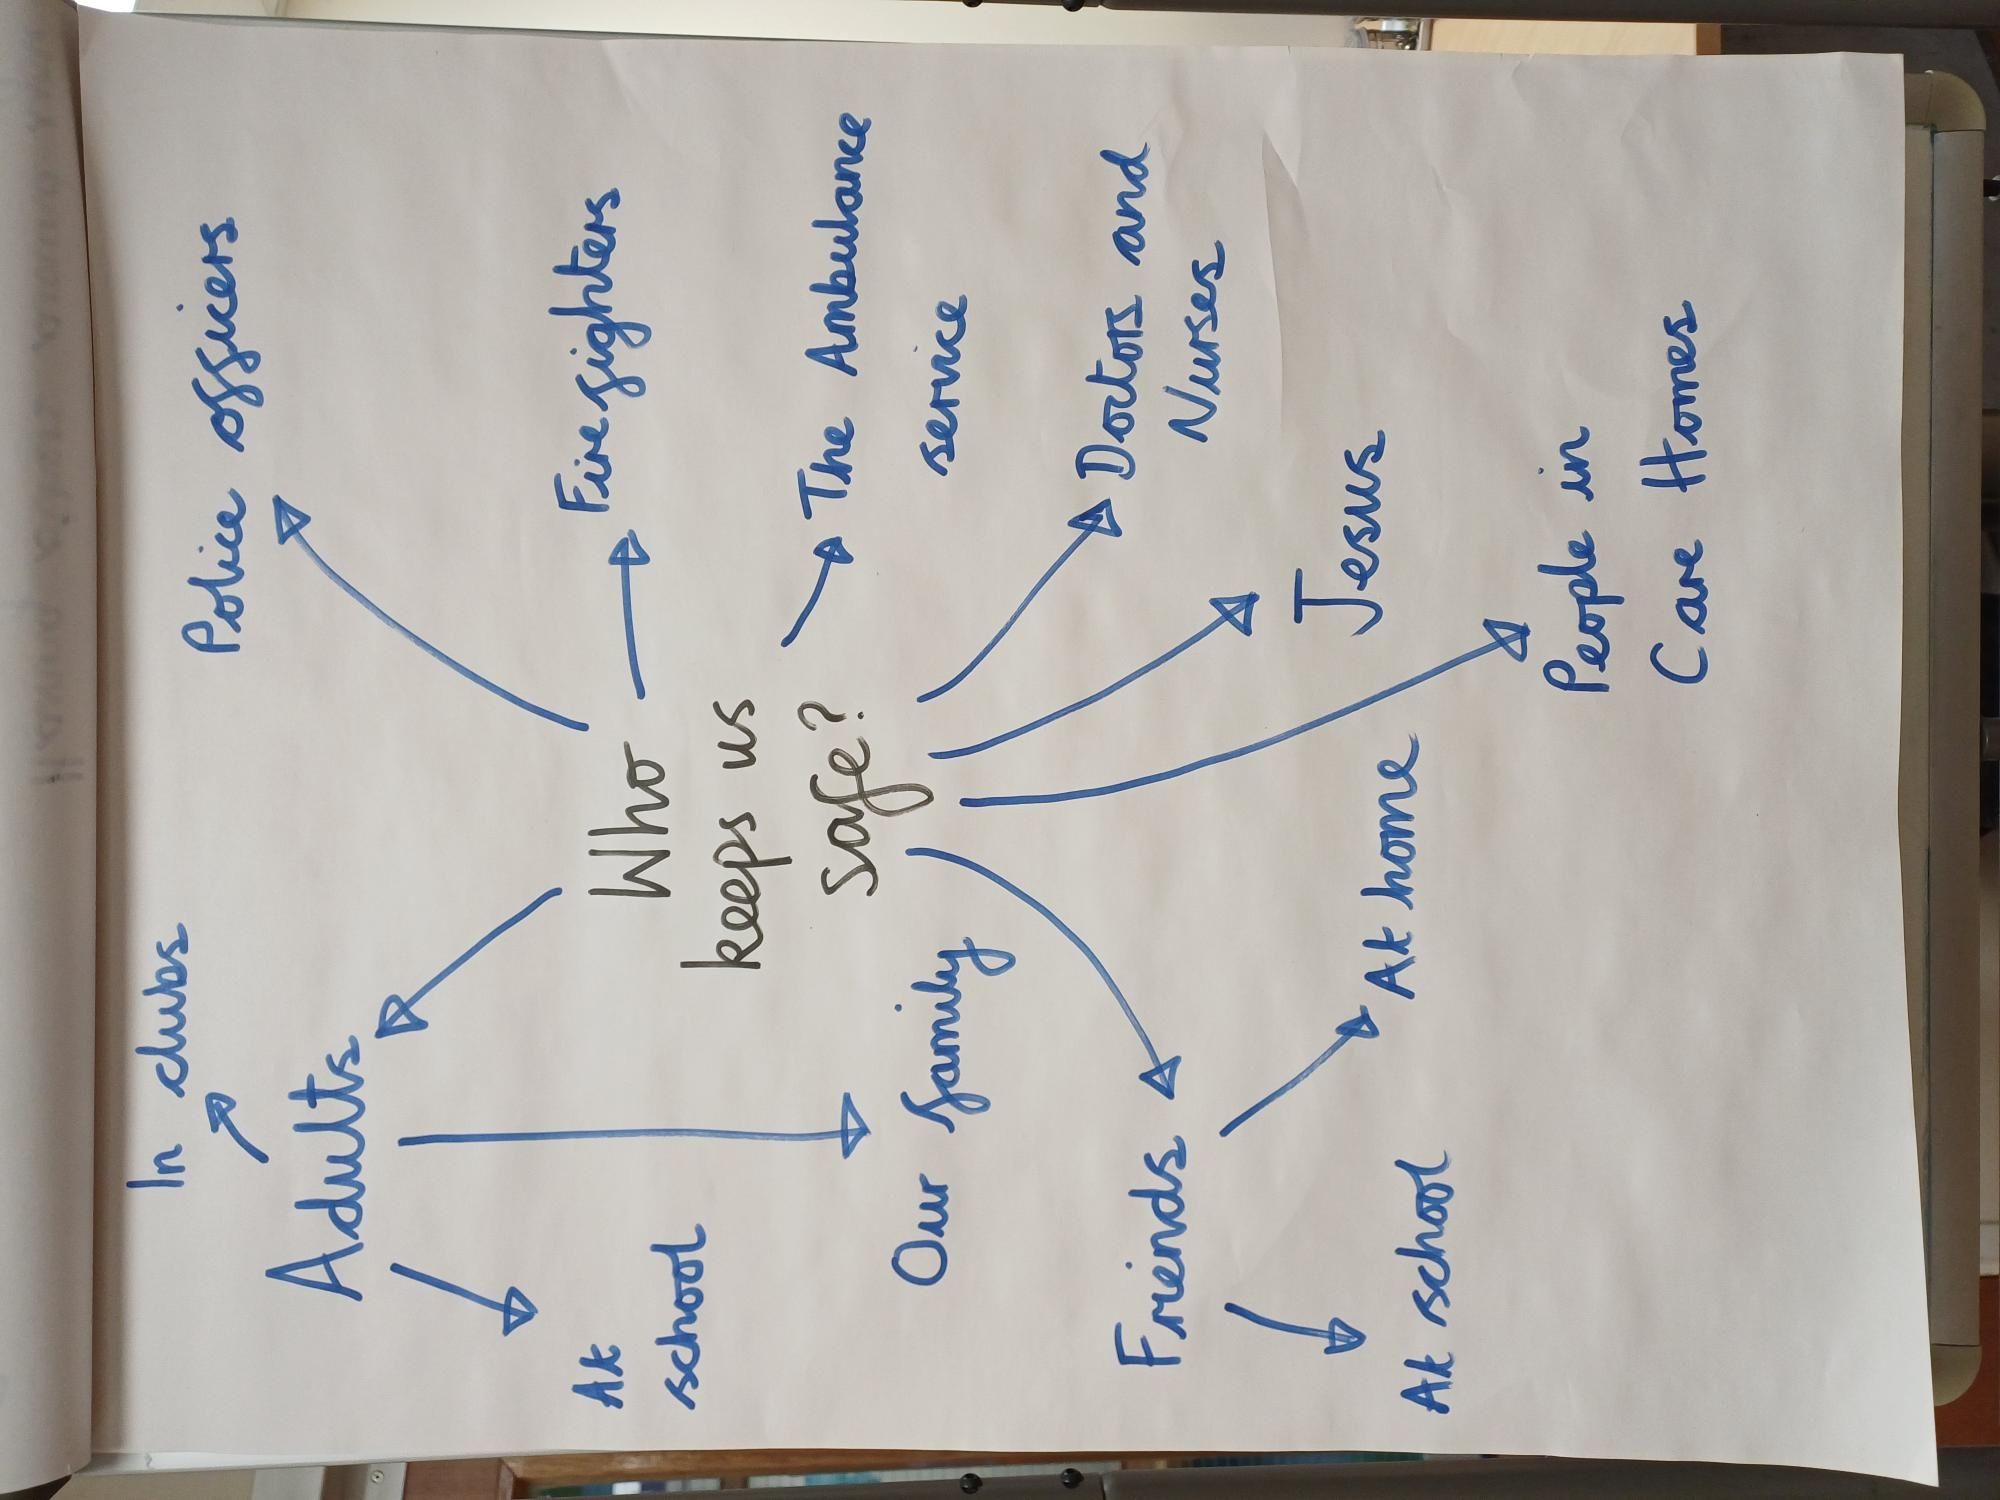 Who
keeps us
safe?
Police officers
Firefighters
The Ambulance
service
Doctors and
Nurses
Jesus
People in
Care Homes
Friends
At home
At school
Adults
In clubs
At
school
Our family